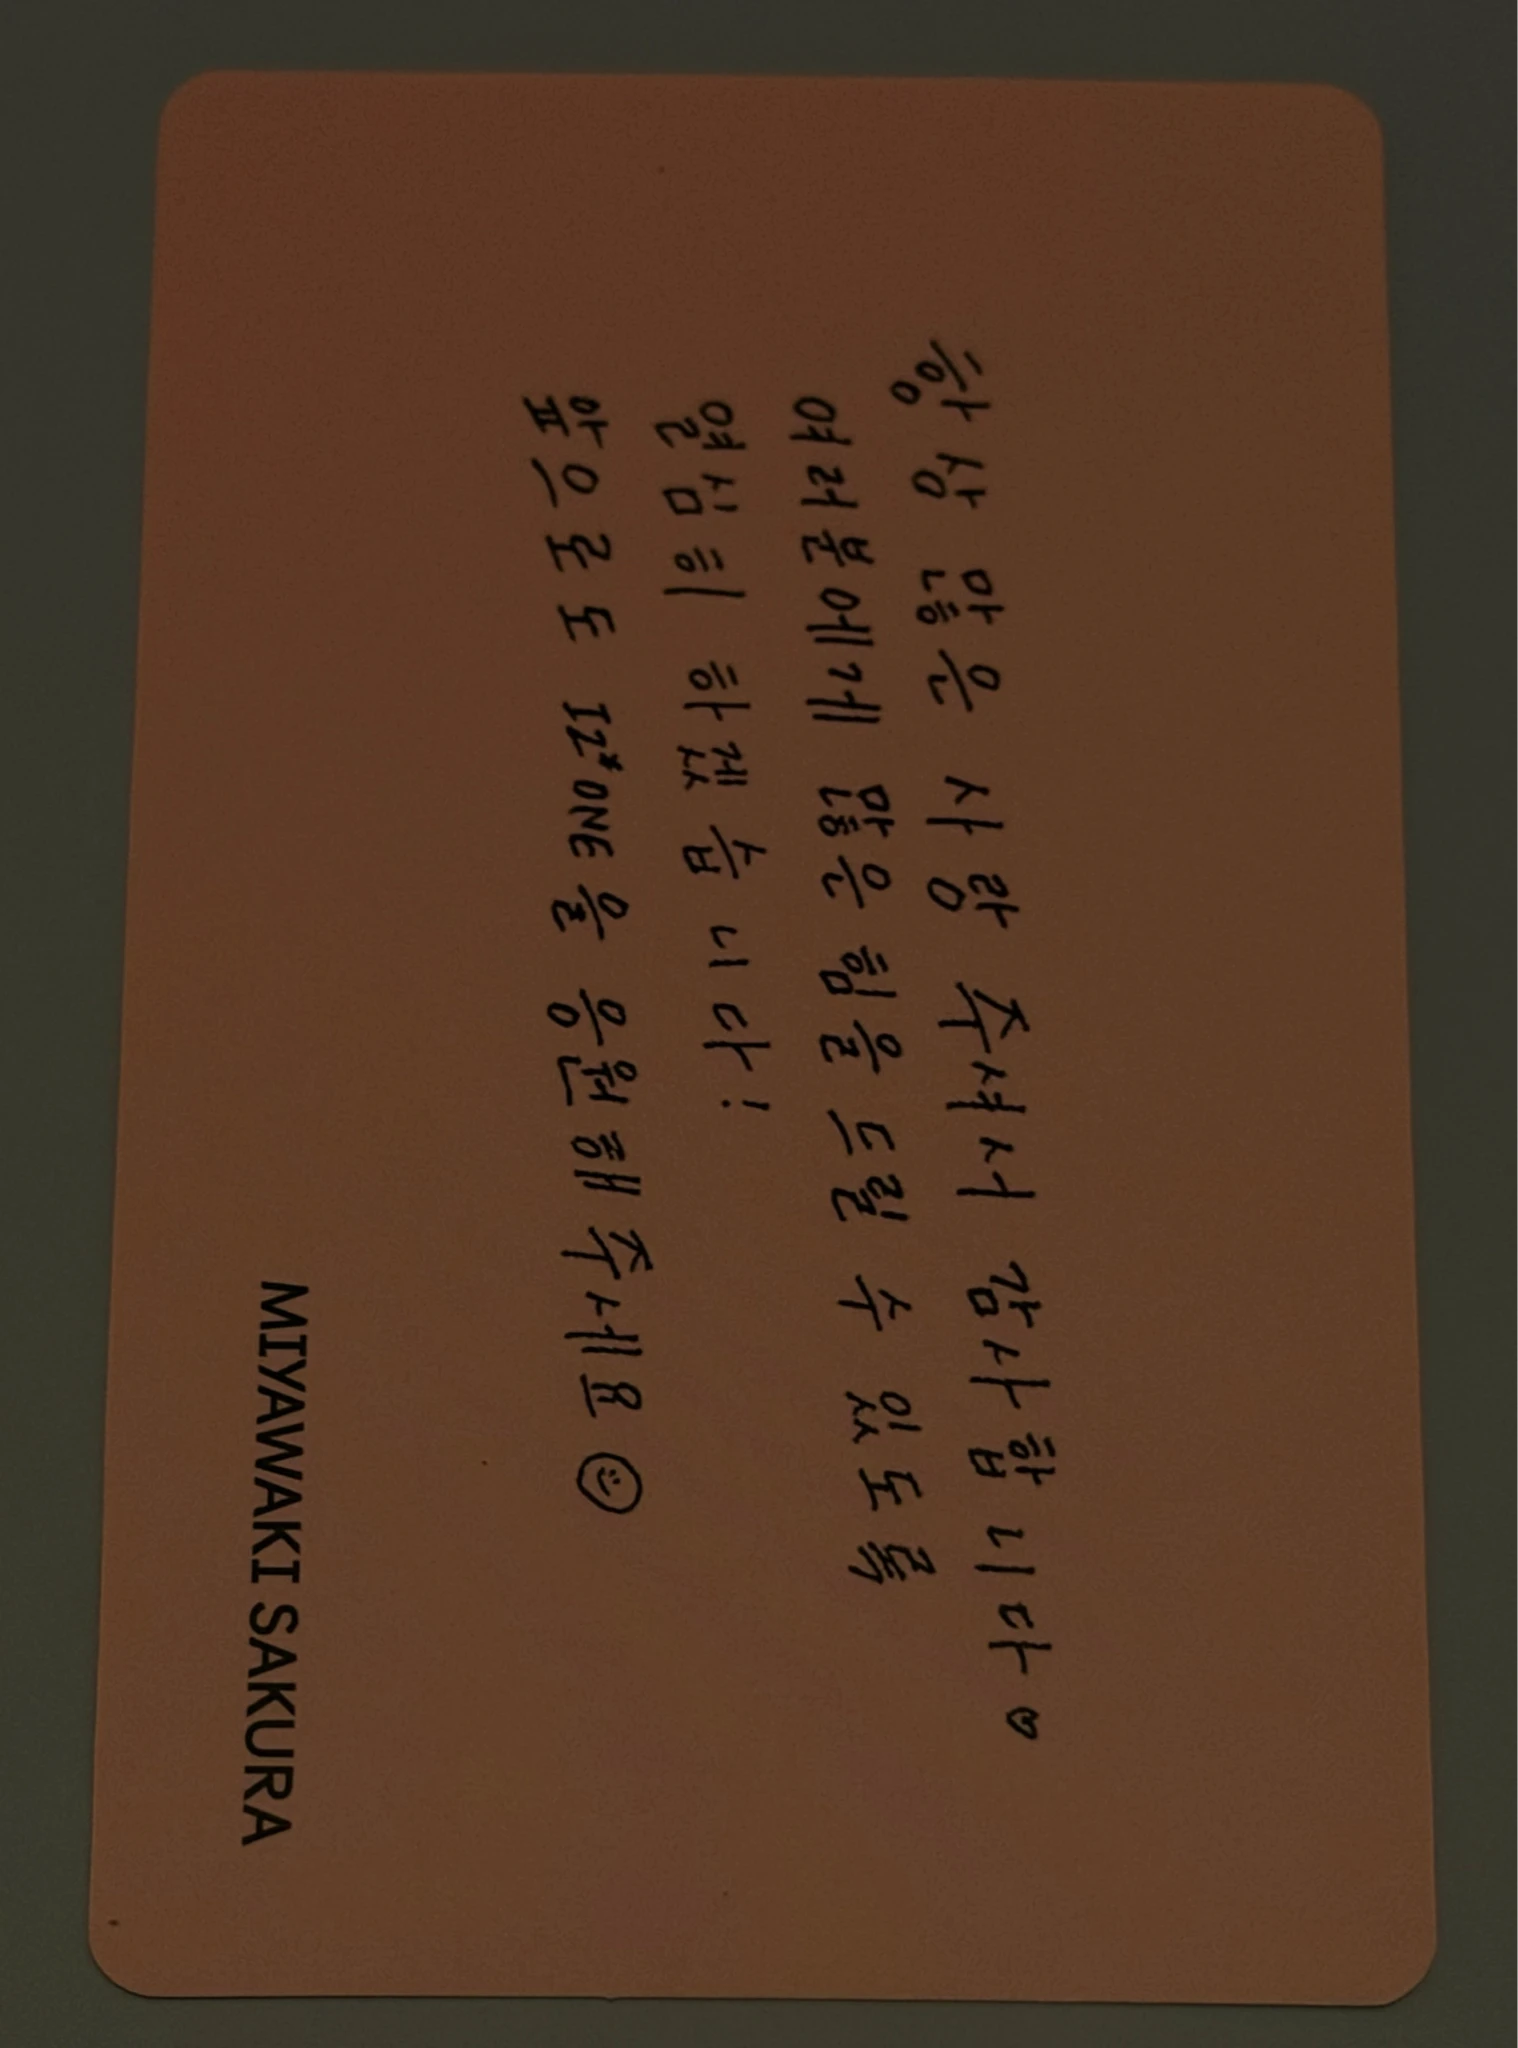 항상 많은 사랑 주셔서 감사합니다♡
여러분에게 많은 힘을 드릴 수 있도록
열심히 하겠습니다!
앞으로도 IZ*ONE을 응원해주세요☺
MIYAWAKI SAKURA